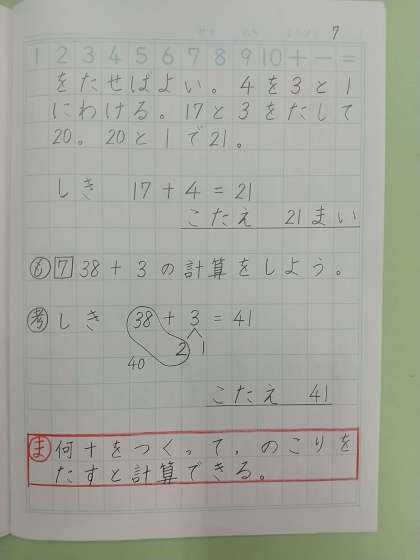 7
1 2 3 4 5 6 7 8 9 10 + - =
をたせばよい。4を3と1
にわける。17と3をたして
20。20と1で21。
しき 17 + 4 = 21
こたえ 21まい
も 7 38 + 3 の計算をしよう。
考 しき 38 + 3 = 41
2 1
40
こたえ 41
ま 何十をつくって、のこりを
たすと計算できる。